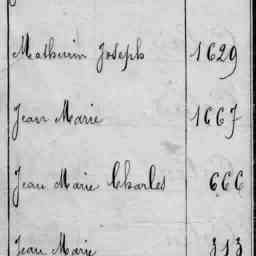 Mathurin Joseph 1629
Jean Marie 1667
Jean Marie Charles 666
Jean Marie 313